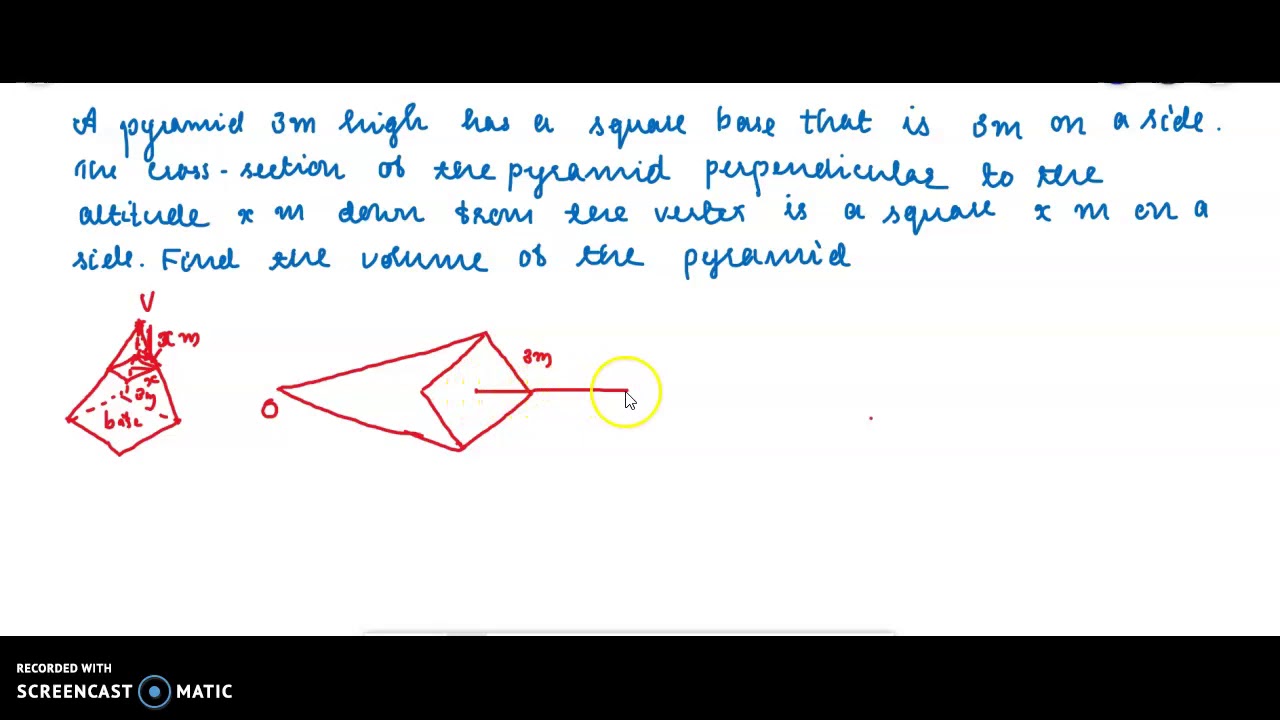 A pyramid 3m high has a square base that is 3m on a side.
The cross-section of the pyramid perpendicular to the
altitude x m down from the vertex is a square x m on a
side. Find the volume of the pyramid
V
x m
x
3m
base
3m
O
RECORDED WITH
SCREENCAST MATIC